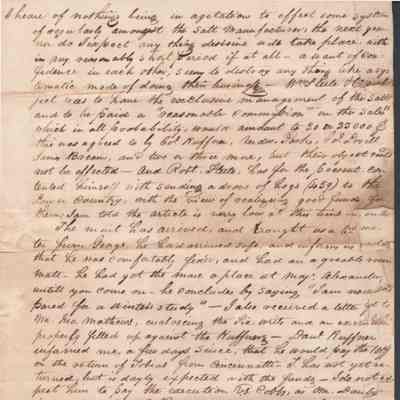 I heare of nothing being in agitation to effect some system
of regularity amongst the Salt Manufacturers the next year
nor do I expect any thing desirous will take place with
in any reasonably short period if at all - a want of con-
fidence in each other, seem to destroy any thing like a sys-
tematic mode of doing their business - Mr Steele
ject was to have the exclusive management of the Salt
and to be paid a "reasonable Commission" on the sales
which in all probability would amount to 20 or 25000 $
this was agreed to by Col Ruffner, Lovell
and two or three more, but their object could
not be effected - and Robt. Steele, has for the present con-
tented himself with sending a drove of Hogs (450) to the
Country, with the view of realizing good funds for
I am told the article is very low at this time in
The mail has arrived, and brought us a let-
ter from George he had arrived safe, and informs us
that he was comfortably fixed, and had an agreeable room
mate - he had got the mare a place at Maj: Alexander
untill you come on - he concludes by saying, "I am now pre-
pared for a winters study" - I also received a letter
Mr. Geo Mathews, enclosing the Fia writs and an
properly filled up against the Ruffners - Danl Ruffner
informed me, a few days since, that he would pay the
on the return of Tobias from Cincinnatti - I has not yet re-
turned, but is dayly expected with the funds - I do not ex
pect him to pay the execution Vs Cobbs, as Mr.